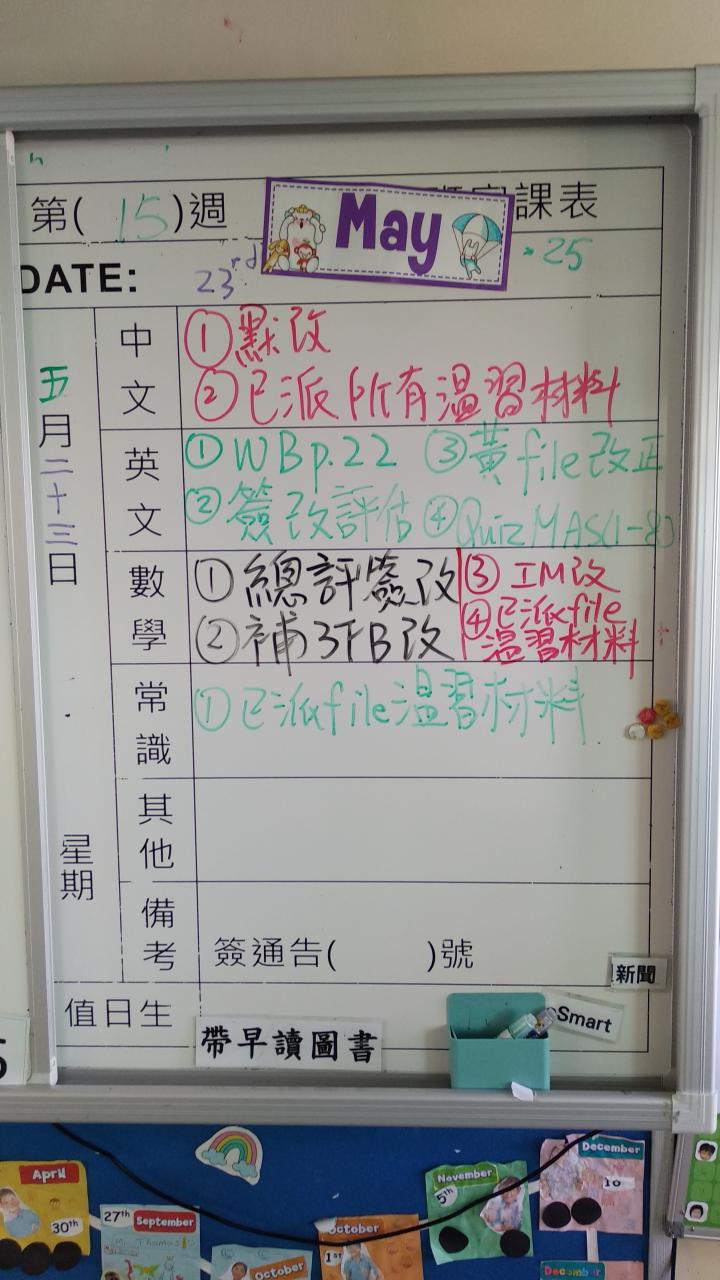 第( 15 )週
課表
May
25
DATE: 23rd
五月二十三日
星期
中文
①默改
②已派所有溫習材料
英文
①WBp.22 ③黃file改正
②簽改評估 ④Quiz MAS(1-8)
數學
①總評簽改
②補3FB改
③IM改
④已派file
溫習材料
常識
①已派file溫習材料
其他
備考
簽通告( )號
新聞
值日生
帶早讀圖書
eSmart
April
30th
27th September
October
October
1st
November
5th
December
10
December